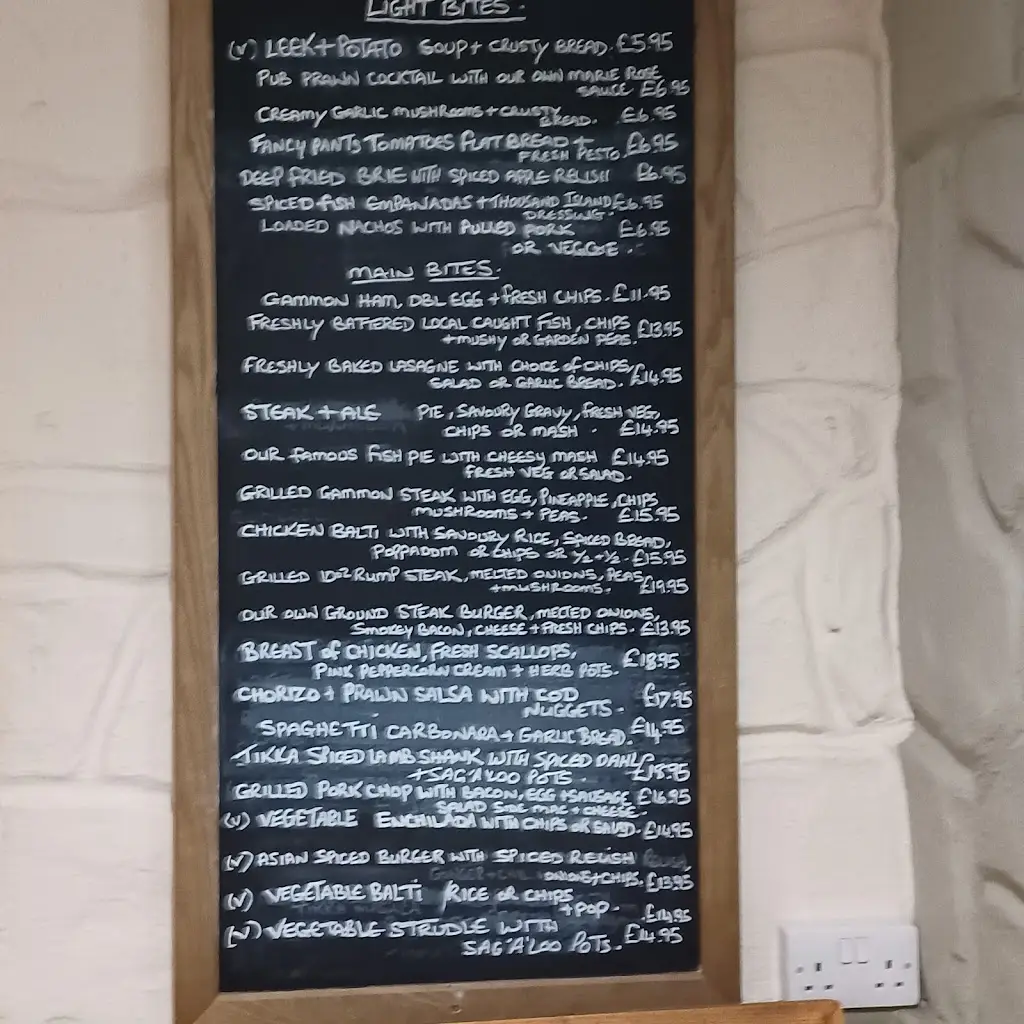 LIGHT BITES.
(V) LEEK + POTATO SOUP + CRUSTY BREAD. £5.95
PUB PRAWN COCKTAIL WITH OUR OWN MARIE ROSE
SAUCE £6.95
CREAMY GARLIC MUSHROOMS + CRUSTY
BREAD. £6.95
FANCY PANTS TOMATOES FLAT BREAD +
FRESH PESTO. £6.95
DEEP FRIED BRIE WITH SPICED APPLE RELISH £6.95
SPICED FISH EMPANADAS + THOUSAND ISLAND £6.95
DRESSING.
LOADED NACHOS WITH PULLED PORK £6.95
OR VEGGIE.
MAIN BITES.
GAMMON HAM, DBL EGG + FRESH CHIPS. £11.95
FRESHLY BATTERED LOCAL CAUGHT FISH, CHIPS
+ MUSHY OR GARDEN PEAS. £13.95
FRESHLY BAKED LASAGNE WITH CHOICE OF CHIPS,
SALAD OR GARLIC BREAD. £14.95
STEAK + ALE PIE, SAVOURY GRAVY, FRESH VEG,
CHIPS OR MASH. £14.95
OUR FAMOUS FISH PIE WITH CHEESY MASH £14.95
FRESH VEG OR SALAD.
GRILLED GAMMON STEAK WITH EGG, PINEAPPLE, CHIPS
MUSHROOMS + PEAS. £15.95
CHICKEN BALTI WITH SAVOURY RICE, SPICED BREAD,
POPPADOM OR CHIPS OR ½ + ½. £15.95
GRILLED 10oz RUMP STEAK, MELTED ONIONS, PEAS
+ MUSHROOMS. £19.95
OUR OWN GROUND STEAK BURGER, MELTED ONIONS,
SMOKEY BACON, CHEESE + FRESH CHIPS. £13.95
BREAST of CHICKEN, FRESH SCALLOPS,
PINK PEPPERCORN CREAM + HERB POTS. £18.95
CHORIZO + PRAWN SALSA WITH COD £17.95
NUGGETS.
SPAGHETTI CARBONARA + GARLIC BREAD. £14.95
TIKKA SPICED LAMB SHANK WITH SPICED DAHL
+ SAG'A'LOO POTS. £18.95
GRILLED PORK CHOP WITH BACON, EGG + SAUSAGE £16.95
SALAD SIDE MAC + CHEESE.
(V) VEGETABLE ENCHILADA WITH CHIPS OR SALAD. £14.95
(V) ASIAN SPICED BURGER WITH SPICED RELISH
ONIONS + CHIPS. £13.95
(V) VEGETABLE BALTI RICE OR CHIPS
+ POP. £14.95
(V) VEGETABLE STRUDLE WITH
SAG'A'LOO POTS. £14.95